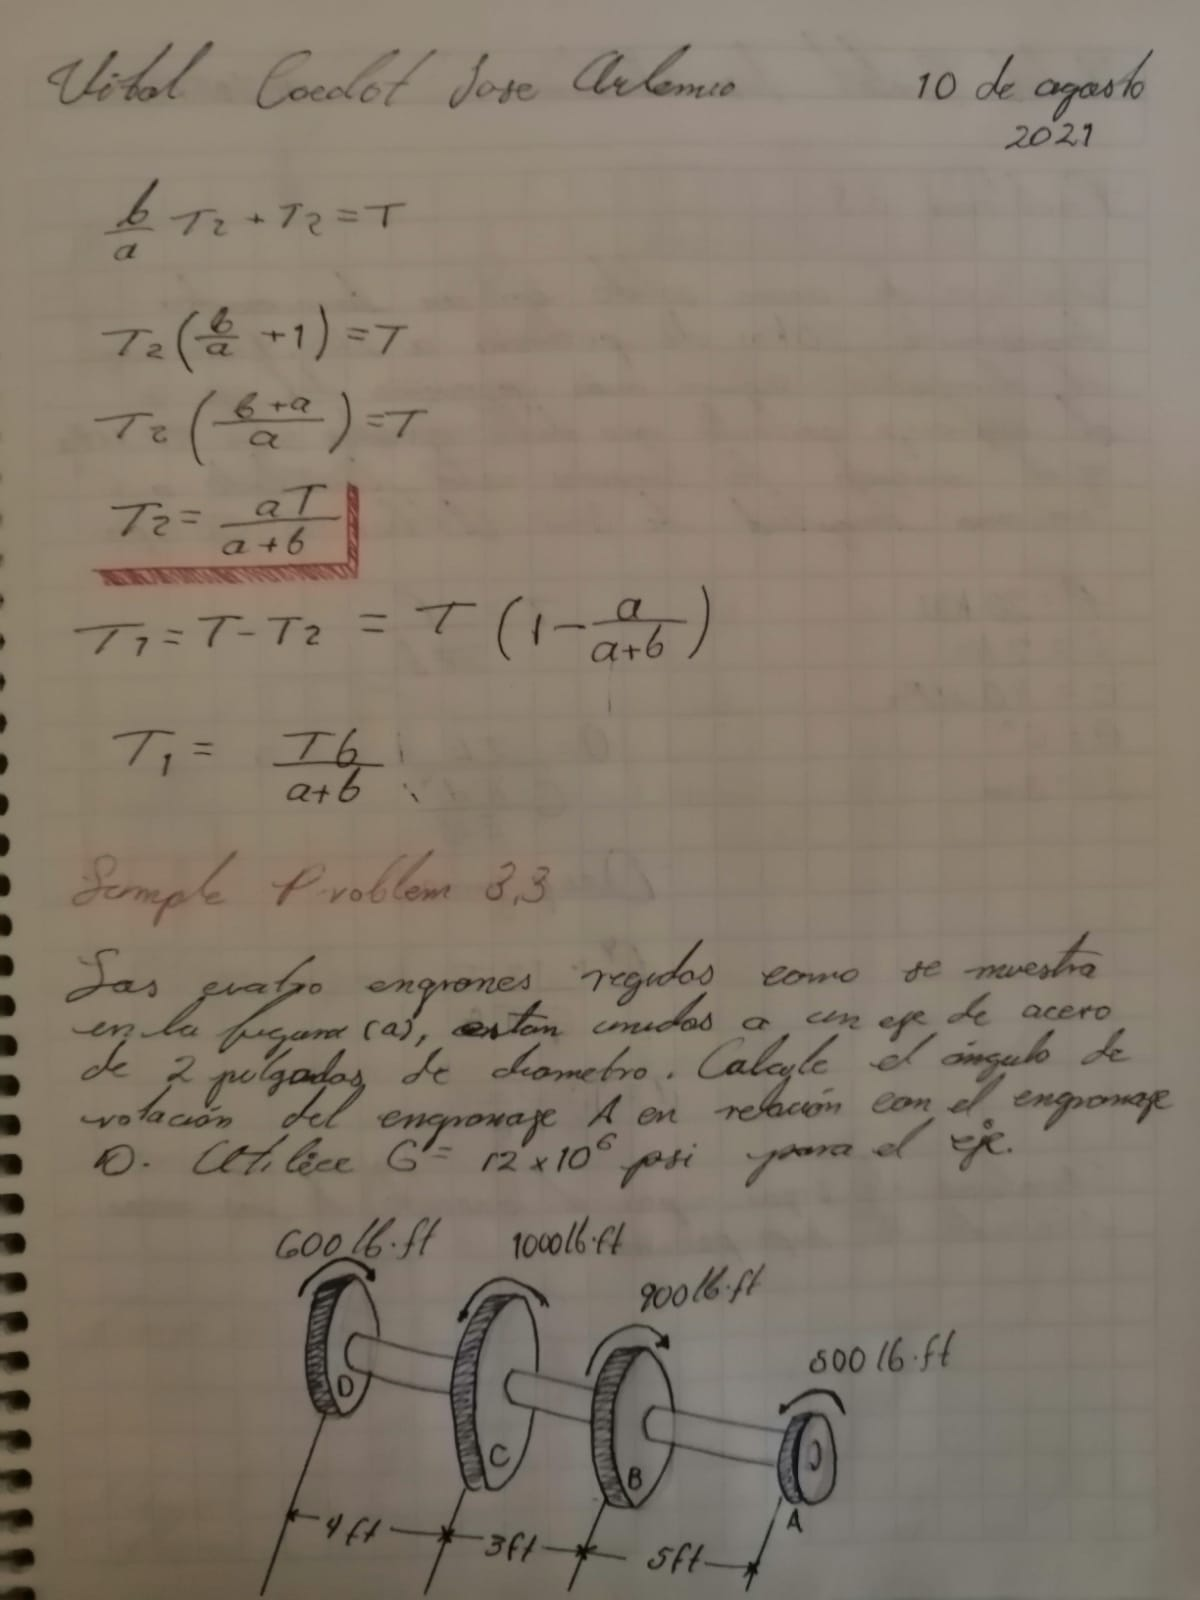 Vital Coedot Jose Artemio 10 de agosto
2021
b/a T2 + T2 = T
T2 (b/a + 1) = T
T2 (b+a/a) = T
T2 = aT/a+b
T1 = T - T2 = T (1 - a/a+b)
T1 = Tb/a+b
Sample Problem 3,3
Las cuatro engrones regidos como se muestra
en la figura (a), estan unidos a un eje de acero
de 2 pulgadas de diametro. Calcule el ángulo de
rotación del engronaje A en relación con el engronaje
D. Utilice G = 12 x 10⁶ psi para el eje.
600 lb·ft 1000 lb·ft
900 lb·ft
500 lb·ft
D
C
B
A
4 ft 3 ft 5 ft